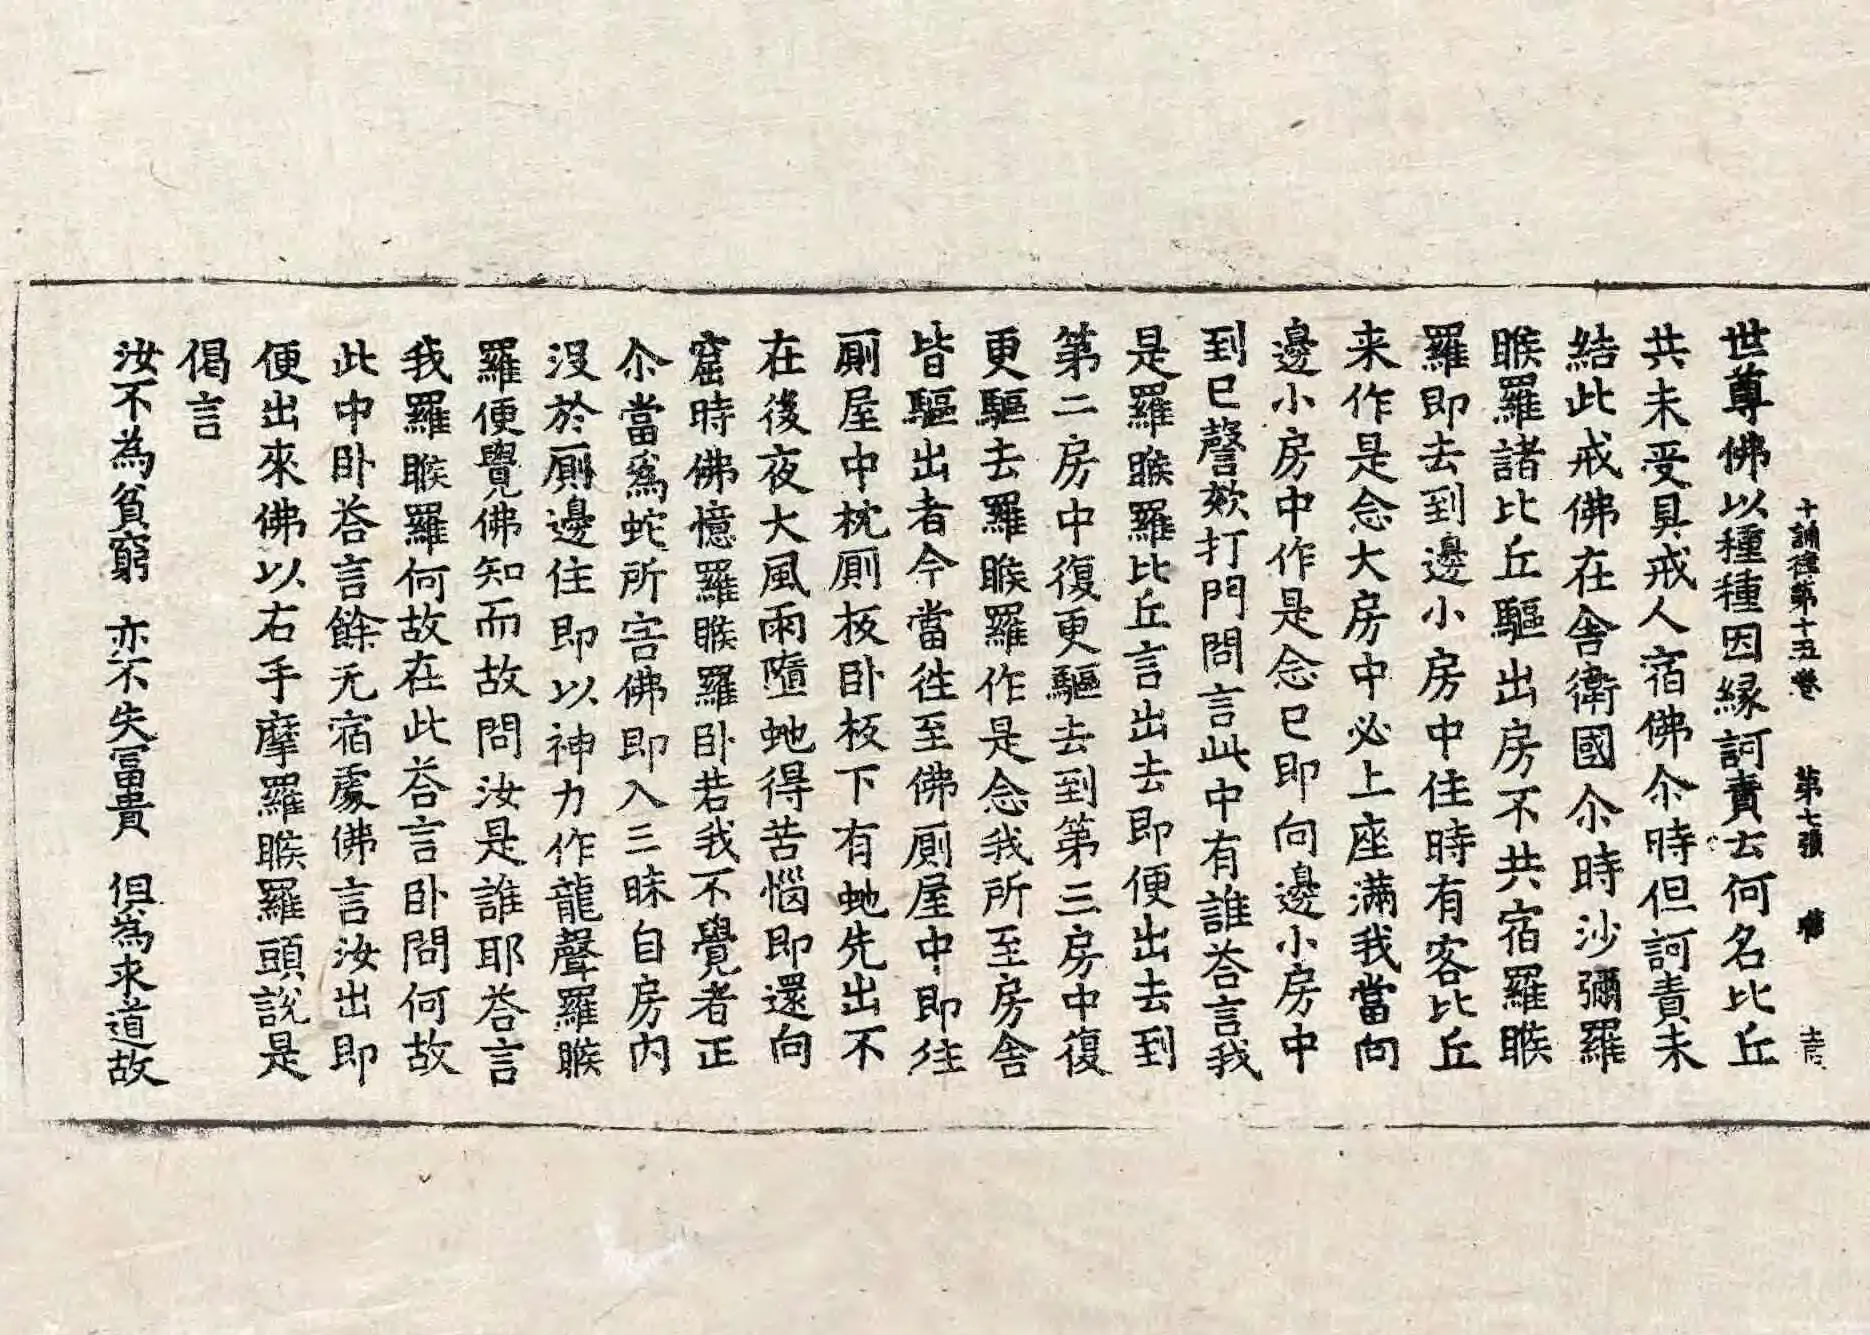 十誦律第十五卷 第七張
世尊佛以種種因縁訶責去何名比丘
共未受具戒人宿佛尒時但訶責未
結此戒佛在舎衛國尒時沙彌羅
睺羅諸比丘驅出房不共宿羅睺
羅即去到邊小房中住時有客比丘
来作是念大房中必上座滿我當向
邊小房中作是念已即向邊小房中
到已謦欬打門問言此中有誰荅言我
是羅睺羅比丘言出去即便出去到
第二房中復更驅去到第三房中復
更驅去羅睺羅作是念我所至房舎
皆驅出者今當徃至佛厠屋中即往
厠屋中枕厠板卧板下有虵先出不
在後夜大風雨墮虵得苦惱即還向
窟時佛憶羅睺羅卧若我不覺者正
尒當爲蛇所害佛即入三昧自房內
没於厠邊住即以神力作龍聲羅睺
羅便覺佛知而故問汝是誰耶荅言
我羅睺羅何故在此荅言卧問何故
此中卧荅言餘无宿處佛言汝出即
便出來佛以右手摩羅睺羅頭說是
偈言
汝不為貧窮 亦不失冨貴 但為求道故